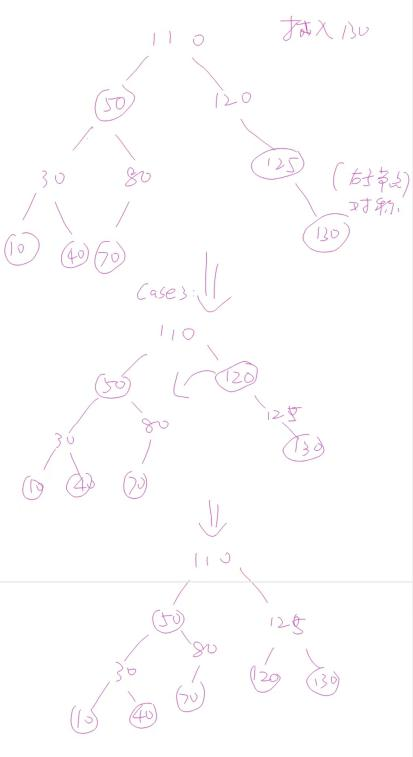 110 插入130
50 120
30 80 125 (右子节点)
10 40 70 130 对称
Case3:
110
50 120
30 80 125
10 40 70 130
110
50 125
30 80 120 130
10 40 70